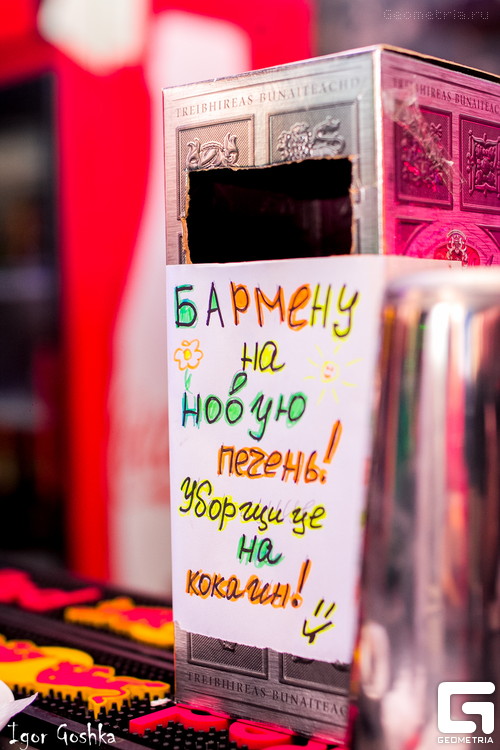 Geometria.ru
TREIBHIREAS BUNAITEACHD
TREIBHIREAS BUNAITEAC
Бармену
на
новую
печень!
Уборщице
на
кокаин!
TREIBHIREAS BUNAITEAC
Igor Goshka
GEOMETRIA